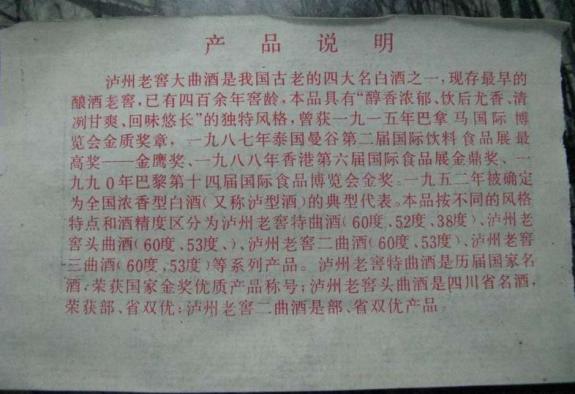 产品说明
泸州老窖大曲酒是我国古老的四大名白酒之一,现存最早的
酿酒老窖,已有四百余年窖龄,本品具有“醇香浓郁、饮后尤香、清
冽甘爽、回味悠长”的独特风格,曾获一九一五年巴拿马国际博
览会金质奖章,一九八七年泰国曼谷第二届国际饮料食品展最
高奖——金鹰奖、一九八八年香港第六届国际食品展金鼎奖、一
九九0年巴黎第十四届国际食品博览会金奖。一九五二年被确定
为全国浓香型白酒(又称泸型酒)的典型代表。本品按不同的风格
特点和酒精度区分为泸州老窖特曲酒(60度、52度、38度)、泸州老
窖头曲酒(60度、53度、)、泸州老窖二曲酒(60度、53度)、泸州老窖
三曲酒(60度,53度)等系列产品。泸州老窖特曲酒是历届国家名
酒,荣获国家金奖优质产品称号;泸州老窖头曲酒是四川省名酒,
荣获部、省双优;泸州老窖二曲酒是部、省双优产品。